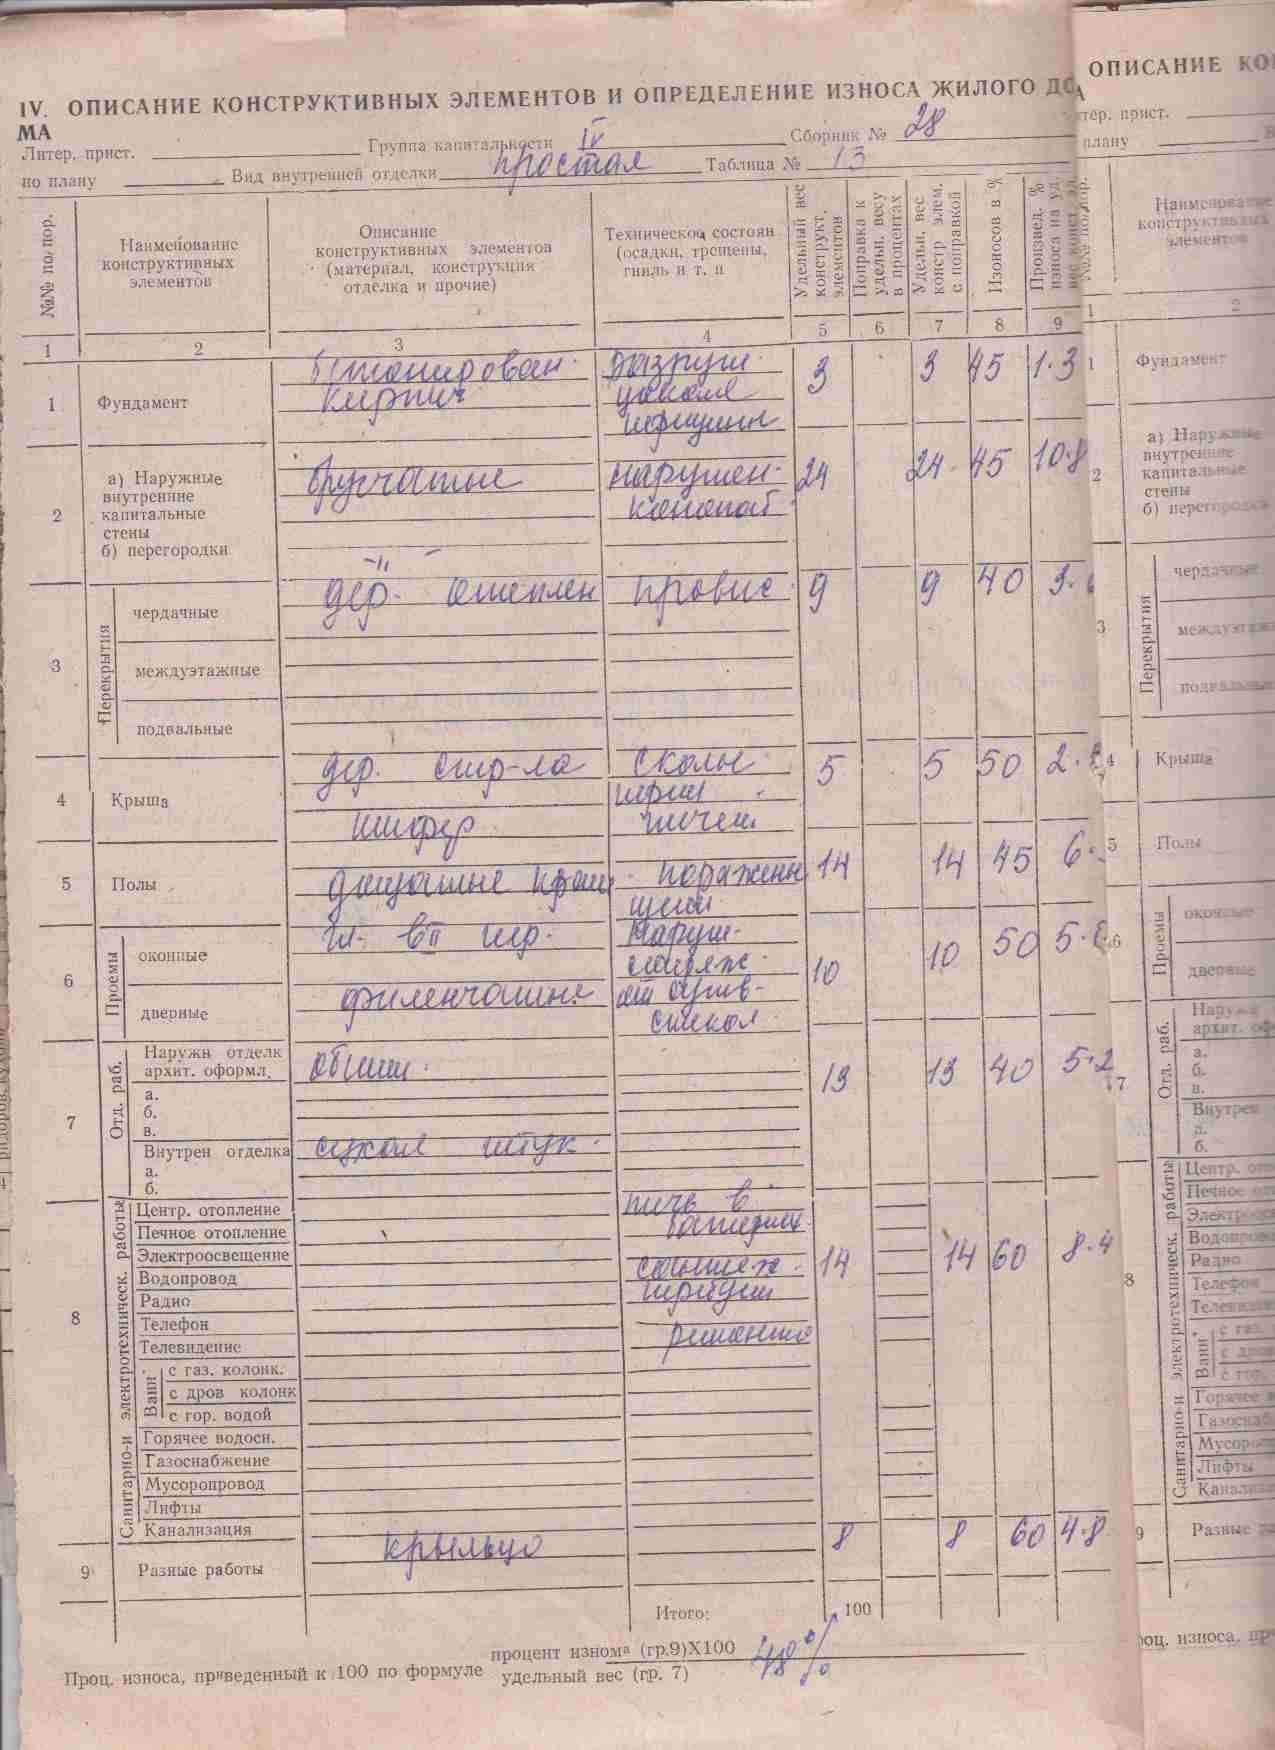 IV. ОПИСАНИЕ КОНСТРУКТИВНЫХ ЭЛЕМЕНТОВ И ОПРЕДЕЛЕНИЕ ИЗНОСА ЖИЛОГО ДО
МА
Литер. прист. Группа капитальности IV Сборник № 28
по плану Вид внутренней отделки простая Таблица № 13
№№ по пор.
Наименование
конструктивных
элементов
Описание
конструктивных элементов
(материал, конструкция
отделка и прочие)
Техническое состоян
(осадки, трещены,
гниль и т. п
Удельный вес
конструкт.
элементов
Поправка к
удельн. весу
в процентах
Удельн. вес
констр элем.
с поправкой
Изоносов в %
Произвед. %
износа на уд.
1 2 3 4 5 6 7 8 9
1 Фундамент
бутонирован.
кирпич
Разруш.
цоколя
трещины
3 3 45 1.3
2
а) Наружные
внутренние
капитальные
стены
б) перегородки
брусчатые
нарушен.
конопат
24 24 45 10.8
-"-
3 Перекрытия
чердачные
дер. утеплен провис
9 9 40 3.
междуэтажные
подвальные
4 Крыша
дер. стр-ла
шифер
сколы
трещ
течеи
5 5 50 2.
5 Полы
дощатые краш поражены
щели
14 14 45 6.
6 Проемы
оконные
дверные
филенчатые
Наруш.
сопряж.
стекол
10 10 50 5.
7 Отд. раб.
Наружн отделк
архит. оформл.
а.
б.
в.
обшит.
13 13 40 5.2
Внутрен отделка
а.
б.
сухая штук.
8 Санитарно-и электротехническ. работы
Центр. отопление
Печное отопление
Электроосвещение
Водопровод
Радио
Телефон
Телевидение
Ванн
с газ. колонк.
с дров колонк
с гор. водой
Горячее водосн.
Газоснабжение
Мусоропровод
Лифты
Канализация
печь в
требуш
ремонта
14 14 60 8.4
9 Разные работы
крыльцо
8 8 60 4.8
Итого: 100
Проц. износа, приведенный к 100 по формуле
процент износа (гр.9)Х100
удельный вес (гр. 7)
48%
ОПИСАНИЕ КО
тер. прист.
плану
Наименование
конструктивных
элементов
1 2
1 Фундамент
2
а) Наружные
внутренние
капитальные
стены
б) перегородки
3 Перекрытия
чердачные
междуэтажн
подвальные
4 Крыша
5 Полы
6 Проемы
оконные
дверные
7 Отд. раб.
Наружн
архит. оф
а.
б.
в.
Внутрен
а.
б.
8 Санитарно-и электротехническ. работы
Центр. ото
Печное от
Электроосв
Водопров
Радио
Телефон
Телевиде
Ванн.
с газ.
с дров
с гор.
Горячее в
Газоснаб
Мусоропр
Лифты
Канализа
9 Разные ра
роц. износа, пр